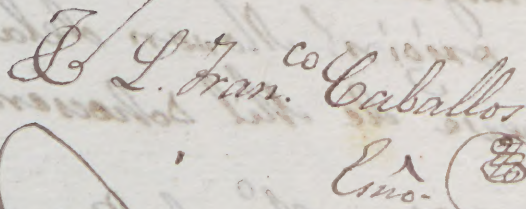 L. Fran.co Caballos
Esno.